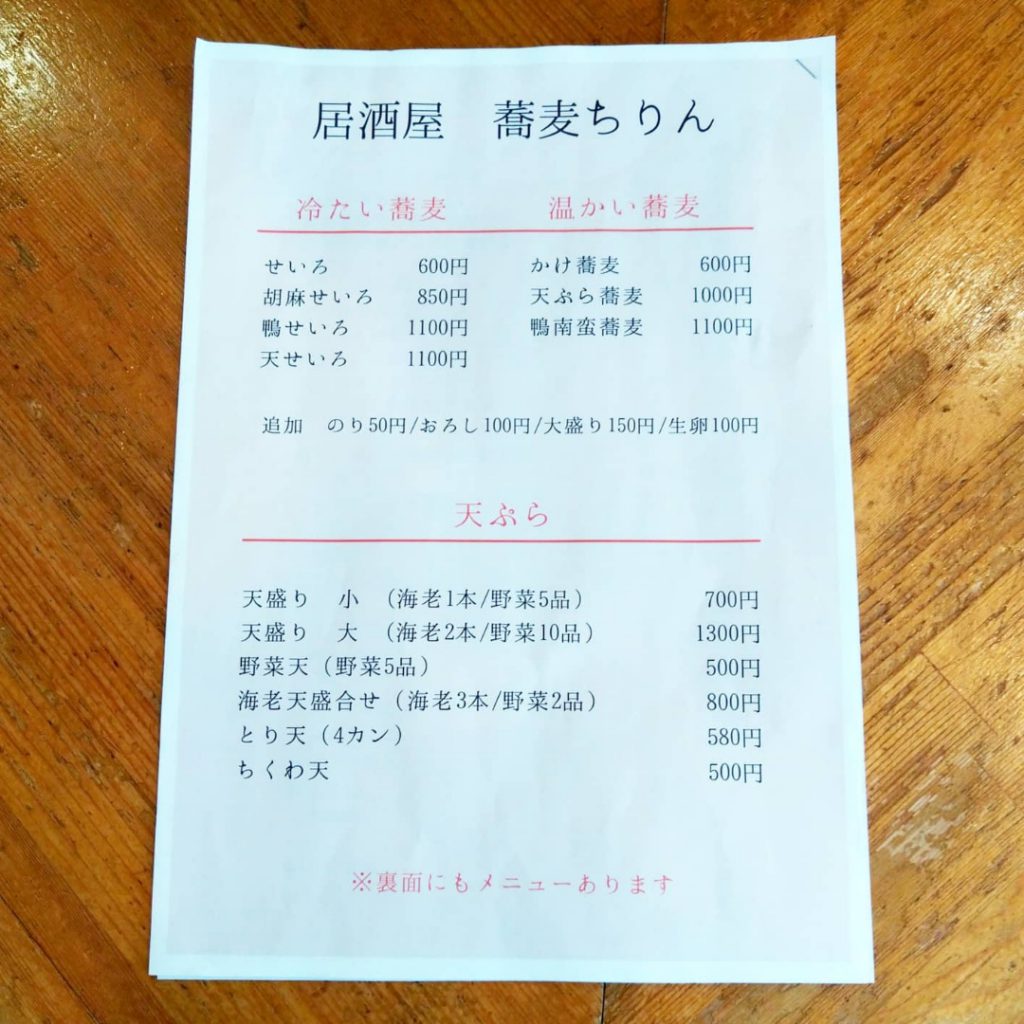 居酒屋　蕎麦ちりん
冷たい蕎麦
せいろ 600円
胡麻せいろ 850円
鴨せいろ 1100円
天せいろ 1100円
温かい蕎麦
かけ蕎麦 600円
天ぷら蕎麦 1000円
鴨南蛮蕎麦 1100円
追加　のり50円/おろし100円/大盛り150円/生卵100円
天ぷら
天盛り　小　（海老1本/野菜5品） 700円
天盛り　大　（海老2本/野菜10品） 1300円
野菜天（野菜5品） 500円
海老天盛合せ（海老3本/野菜2品） 800円
とり天（4カン） 580円
ちくわ天 500円
※裏面にもメニューあります